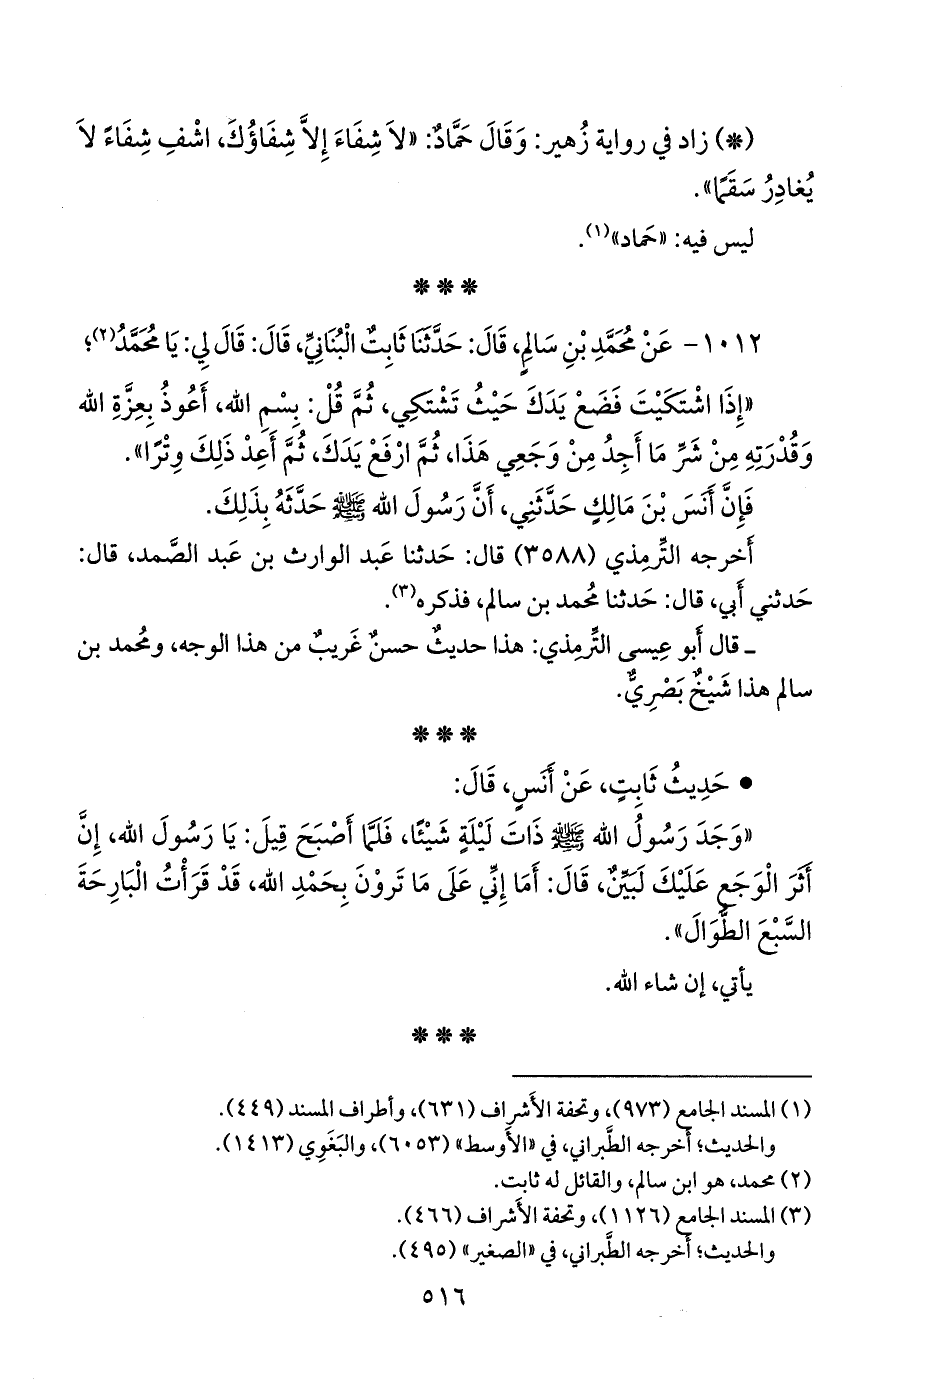 (*) زاد في رواية زُهير: وَقَالَ حَمَّادٌ: «لاَ شِفَاءَ إِلاَّ شِفَاؤُكَ، اشْفِ شِفَاءً لاَ
يُغادِرُ سَقَمًا».
ليس فيه: «حَماد»(١).
* * *
١٠١٢- عَنْ مُحَمَّدِ بْنِ سَالِمٍ، قَالَ: حَدَّثَنَا ثَابِتٌ الْبُنَانِيِّ، قَالَ: قَالَ لِي: يَا مُحَمَّدُ(٢)؛
«إِذَا اشْتَكَيْتَ فَضَعْ يَدَكَ حَيْثُ تَشْتَكِي، ثُمَّ قُلْ: بِسْمِ الله، أَعُوذُ بِعِزَّةِ الله
وَقُدْرَتِهِ مِنْ شَرِّ مَا أَجِدُ مِنْ وَجَعِي هَذَا، ثُمَّ ارْفَعْ يَدَكَ، ثُمَّ أَعِدْ ذَلِكَ وِتْرًا».
فَإِنَّ أَنَسَ بْنَ مَالِكٍ حَدَّثَنِي، أَنَّ رَسُولَ الله ﷺ حَدَّثَهُ بِذَلِكَ.
أَخرجه التِّرمذي (٣٥٨٨) قال: حَدثنا عَبد الوارث بن عَبد الصَّمد، قال:
حَدثني أَبي، قال: حَدثنا مُحمد بن سالم، فذكره(٣).
ـ قال أَبو عِيسى التِّرمِذي: هذا حديثٌ حسنٌ غَريبٌ من هذا الوجه، ومُحمد بن
سالم هذا شَيْخٌ بَصْرِيٌّ.
* * *
• حَدِيثُ ثَابِتٍ، عَنْ أَنَسٍ، قَالَ:
«وَجَدَ رَسُولُ الله ﷺ ذَاتَ لَيْلَةٍ شَيْئًا، فَلَمَّا أَصْبَحَ قِيلَ: يَا رَسُولَ الله، إِنَّ
أَثَرَ الْوَجَعِ عَلَيْكَ لَبَيِّنٌ، قَالَ: أَمَا إِنِّي عَلَى مَا تَرَوْنَ بِحَمْدِ الله، قَدْ قَرَأْتُ الْبَارِحَةَ
السَّبْعَ الطُّوَالَ».
يأتي، إن شاء الله.
* * *
(١) المسند الجامع (٩٧٣)، وتحفة الأَشراف (٦٣١)، وأطراف المسند (٤٤٩).
والحديث؛ أَخرجه الطَّبراني، في «الأَوسط» (٦٠٥٣)، والبَغَوِي (١٤١٣).
(٢) محمد، هو ابن سالم، والقائل له ثابت.
(٣) المسند الجامع (١١٢٦)، وتحفة الأَشراف (٤٦٦).
والحديث؛ أَخرجه الطَّبراني، في «الصغير» (٤٩٥).
٥١٦